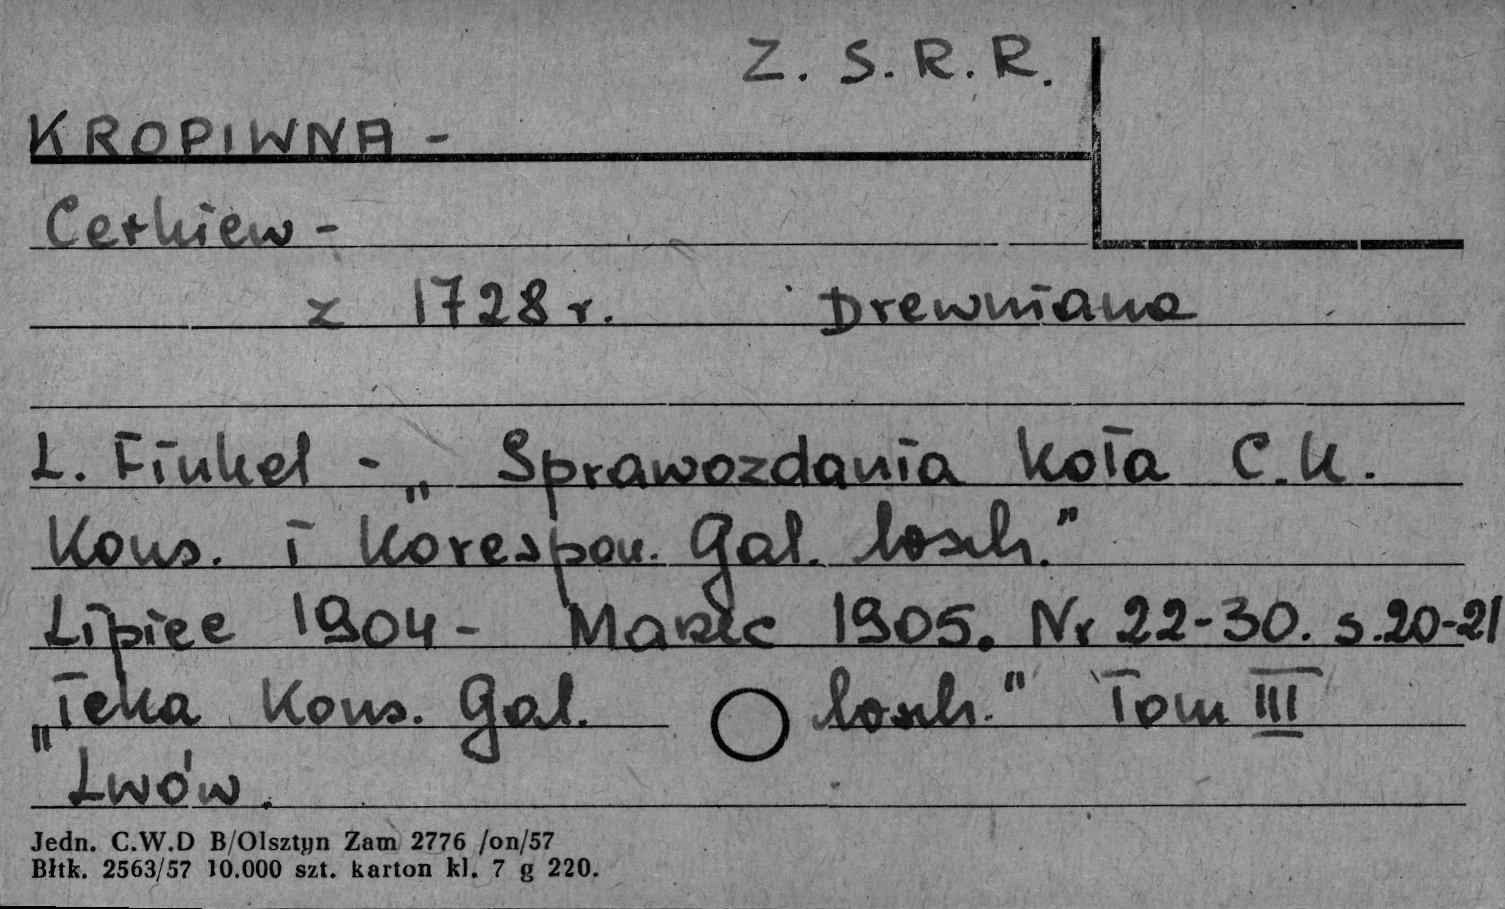 Z. S. R. R.
KROPIWNA -
Cerkiew -
z 1728 r. Drewniana
L. Finkel - „Sprawozdania Koła C.K.
Kons. i Korespon. Gal. wsch."
Lipiec 1904 - Marzec 1905. Nr 22-30. s.20-21
„Teka Kons. Gal. wsch." Tom III
Lwów.
Jedn. C.W.D B/Olsztyn Zam 2776 /on/57
Błtk. 2563/57 10.000 szt. karton kl. 7 g 220.